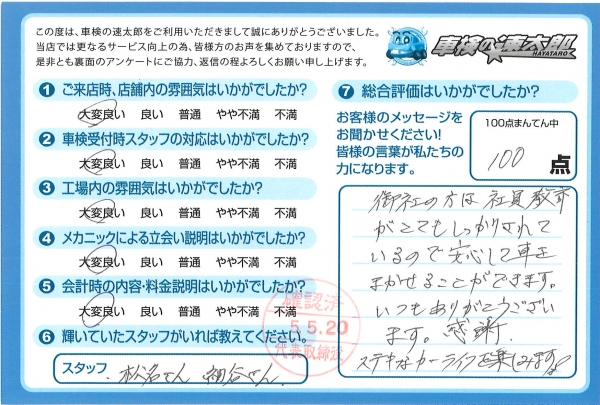 この度は、車検の速太郎をご利用いただきまして誠にありがとうございました。
当店では更なるサービス向上の為、皆様方のお声を集めておりますので、
是非とも裏面のアンケートにご協力、返信の程よろしくお願い申し上げます。
車検の速太郎
HAYATARO
1 ご来店時、店舗内の雰囲気はいかがでしたか?
大変良い 良い 普通 やや不満 不満
2 車検受付時スタッフの対応はいかがでしたか?
大変良い 良い 普通 やや不満 不満
3 工場内の雰囲気はいかがでしたか?
大変良い 良い 普通 やや不満 不満
4 メカニックによる立会い説明はいかがでしたか?
大変良い 良い 普通 やや不満 不満
5 会計時の内容・料金説明はいかがでしたか?
大変良い 良い 普通 やや不満 不満
6 輝いていたスタッフがいれば教えてください。
スタッフ 松名さん 細谷さん
確認済
5.5.20
代表取締役
7 総合評価はいかがでしたか?
お客様のメッセージを
お聞かせください!
皆様の言葉が私たちの
力になります。
100点まんてん中
100 点
御社の方は社員教育
がとてもしっかりされて
いるので安心して車を
まかせることができます。
いつもありがとうござい
ます。感謝!
ステキなカーライフを楽しみます!